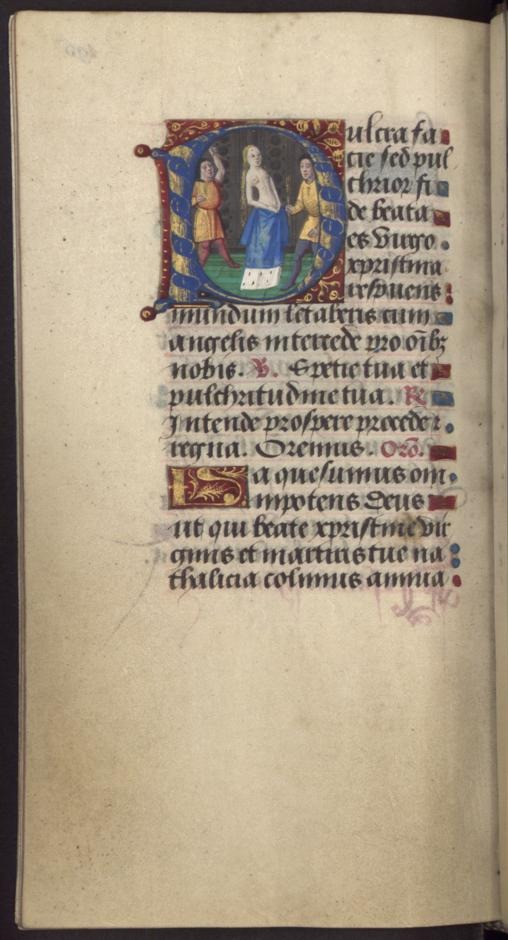 Pulcra fa
cie sed pul
chrior fi
de beata
es virgo
xpristina
respuens
mundum letaberis cum
angelis intercede pro oibz
nobis. V. Specie tua et
pulchritudine tua. R.
Intende prospere procede &
regna. Oremus. Orō.
Da quesumus om
nipotens deus
ut qui beate xpristine vir
ginis et martiris tue na
thalicia colimus annua